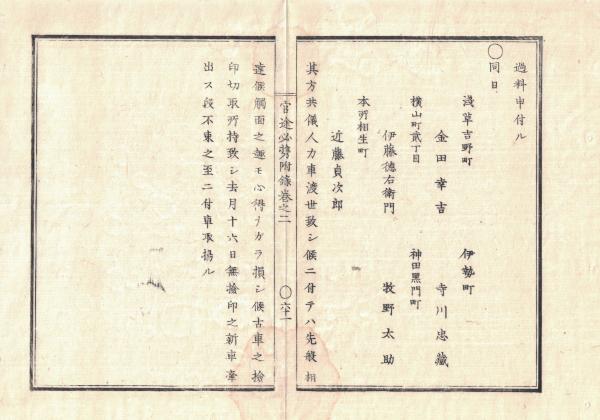 過料申付ル
〇同日
浅草吉野町
金田幸吉
伊勢町
寺川忠蔵
横山町貳丁目
伊藤德右衛門
神田黒門町
牧野太助
本所相生町
近藤貞次郎
其方共儀人力車渡世致シ候ニ付テハ先般相
官途必携附錄巻之二
〇六十一
達候觸面之趣モ心得ナガラ損シ候古車之撿
印切取所持致シ去月十六日無撿印之新車牽
出ス段不束之至ニ付車取揚ル